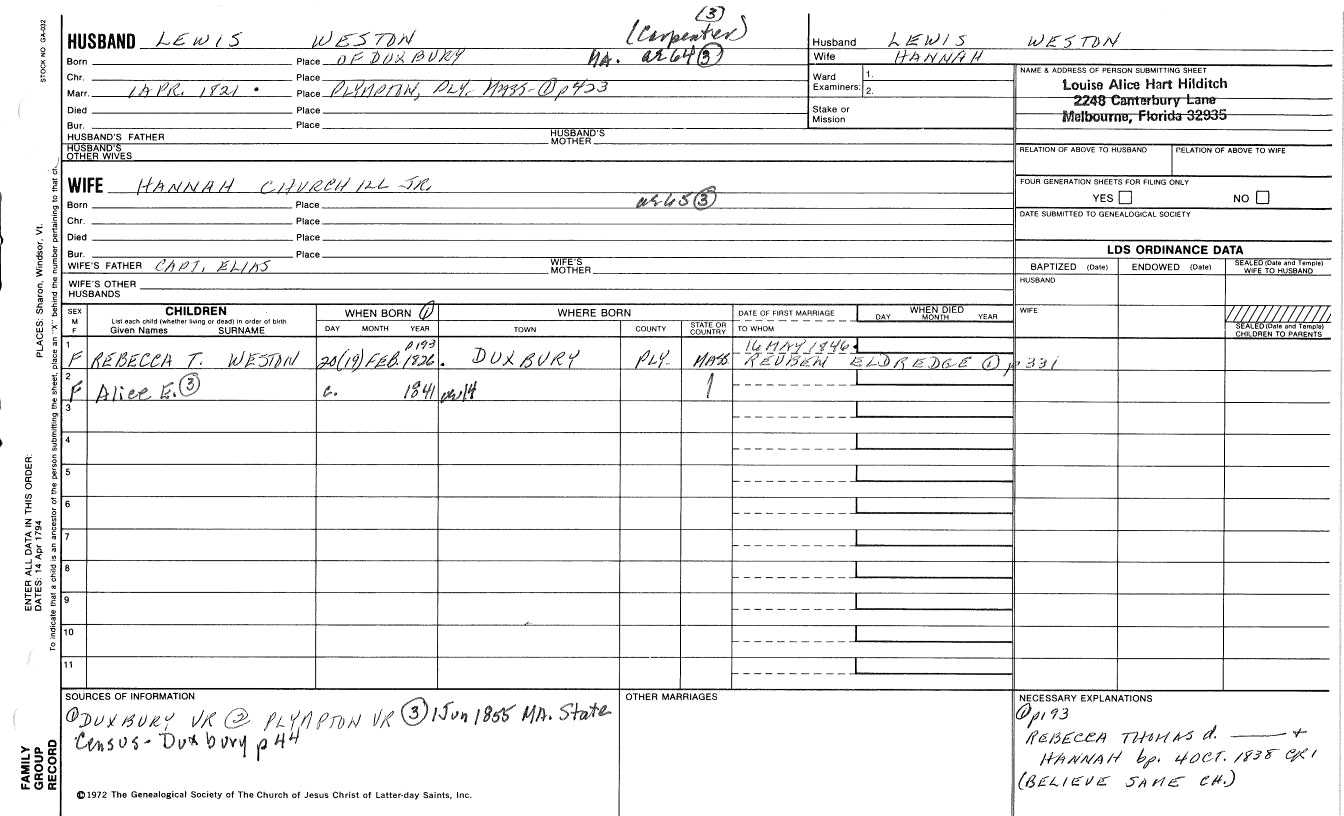 STOCK NO GA-032
(3)
(Carpenter)
HUSBAND LEWIS WESTON
Born Place OF DUXBURY MA. ae 64 (3)
Chr. Place
Marr. 1 APR. 1821 . Place PLYMPTON, PLY. MASS - ① p423
Died Place
Bur. Place
HUSBAND'S FATHER HUSBAND'S MOTHER
HUSBAND'S OTHER WIVES
Husband LEWIS WESTON
Wife HANNAH
Ward Examiners: 1.
2.
Stake or Mission
NAME & ADDRESS OF PERSON SUBMITTING SHEET
Louise Alice Hart Hilditch
2248 Canterbury Lane
Melbourne, Florida 32935
RELATION OF ABOVE TO HUSBAND RELATION OF ABOVE TO WIFE
FOUR GENERATION SHEETS FOR FILING ONLY
YES NO
DATE SUBMITTED TO GENEALOGICAL SOCIETY
WIFE HANNAH CHURCHILL JR.
Born Place ae 65 (3)
Chr. Place
Died Place
Bur. Place
WIFE'S FATHER CAPT. ELIAS WIFE'S MOTHER
WIFE'S OTHER HUSBANDS
LDS ORDINANCE DATA
BAPTIZED (Date) ENDOWED (Date) SEALED (Date and Temple) WIFE TO HUSBAND
HUSBAND
WIFE
SEALED (Date and Temple) CHILDREN TO PARENTS
SEX M F CHILDREN WHEN BORN ① WHERE BORN DATE OF FIRST MARRIAGE WHEN DIED
List each child (whether living or dead) in order of birth
Given Names SURNAME DAY MONTH YEAR TOWN COUNTY STATE OR COUNTRY TO WHOM DAY MONTH YEAR
p193 16 MAY 1846.
1 F REBECCA T. WESTON 20(19) FEB. 1826. DUXBURY PLY. MASS REUBEN ELDREDGE ① p331
2 F Alice E. ③ c. 1841 ae 14
3
4
5
6
7
8
9
10
11
PLACES: Sharon, Windsor, Vt.
ENTER ALL DATA IN THIS ORDER:
DATES: 14 Apr 1794
To indicate that a child is an ancestor of the person submitting the sheet, place an "X" behind the number pertaining to that ch.
FAMILY GROUP RECORD
SOURCES OF INFORMATION
① DUXBURY VR ② PLYMPTON VR ③ 1 Jun 1855 MA. State
Census - Duxbury p 44
©1972 The Genealogical Society of The Church of Jesus Christ of Latter-day Saints, Inc.
OTHER MARRIAGES
NECESSARY EXPLANATIONS
① p193
REBECCA THOMAS d. —— +
HANNAH bp. 4 OCT. 1838 CR1
(BELIEVE SAME CH.)